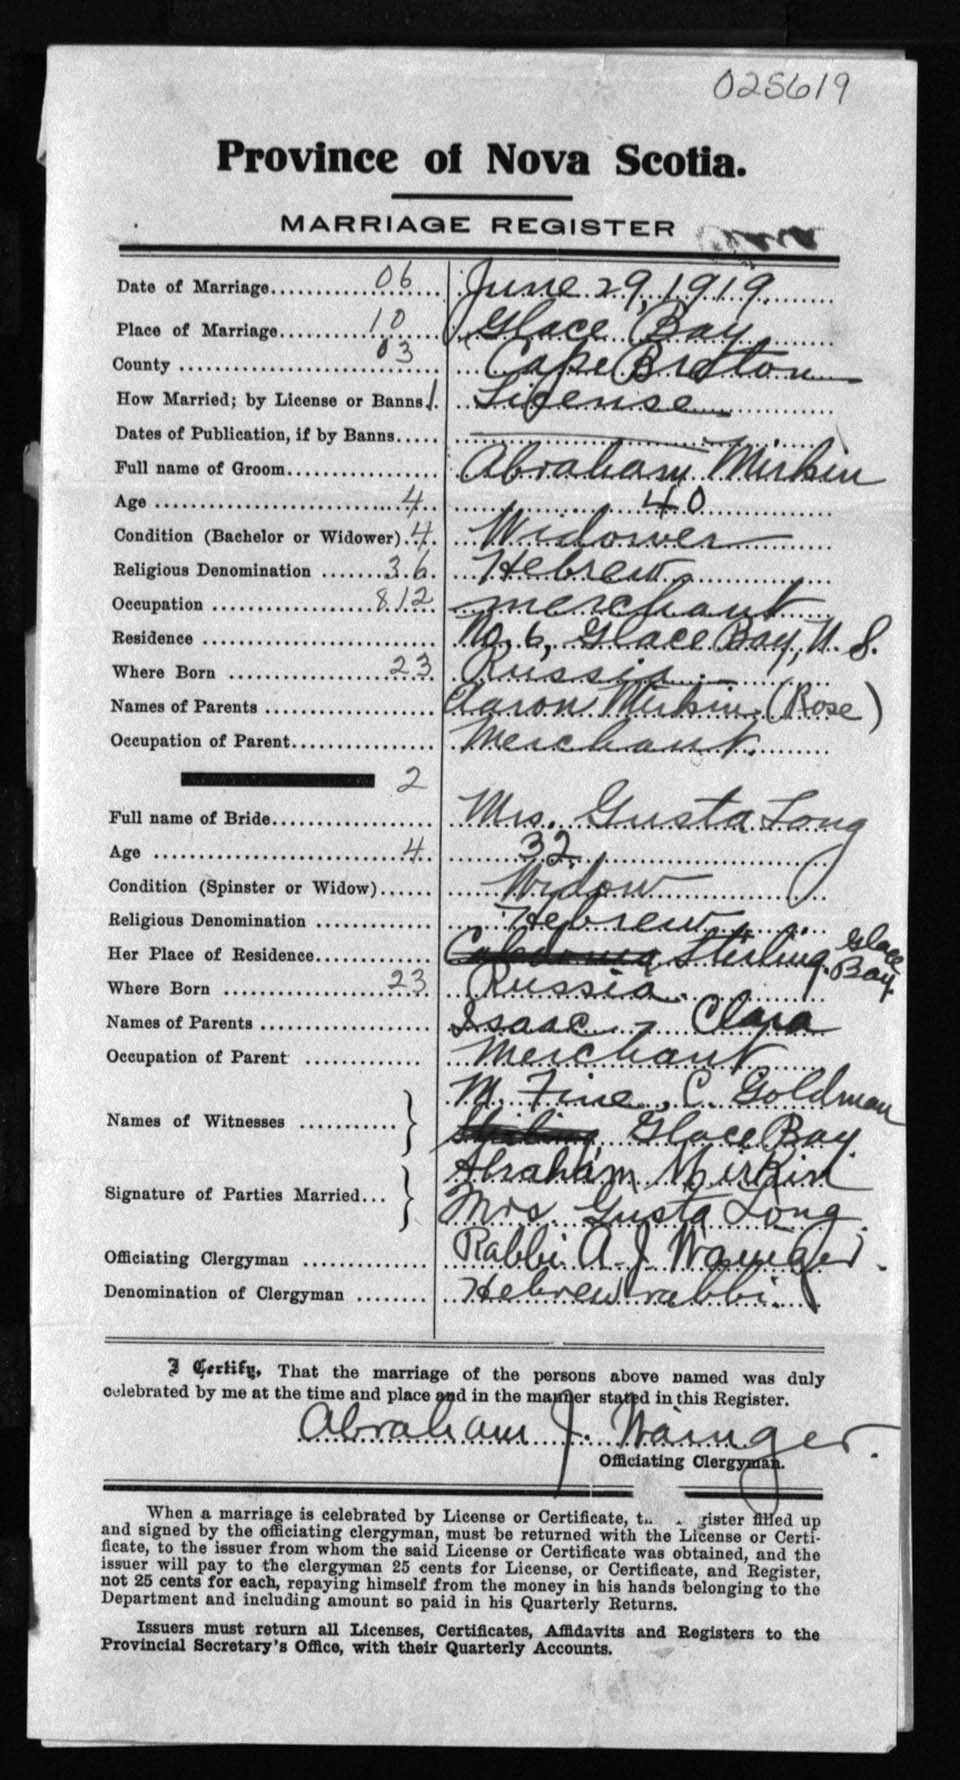 025619
Province of Nova Scotia.
MARRIAGE REGISTER
Date of Marriage 06 June 29, 1919.
Place of Marriage 10 Glace Bay
County 03 Cape Breton
How Married; by License or Banns 1 License
Dates of Publication, if by Banns
Full name of Groom Abraham Mirkin
Age 4 40
Condition (Bachelor or Widower) 4 Widower
Religious Denomination 36 Hebrew
Occupation 812 merchant
Residence No. 6, Glace Bay, N. S.
Where Born 23 Russia
Names of Parents Aaron Mirkin (Rose)
Occupation of Parent Merchant.
2
Full name of Bride Mrs. Gusta Long
Age 4 32
Condition (Spinster or Widow) Widow
Religious Denomination Hebrew
Her Place of Residence Caledonia Sterling, Glace Bay.
Where Born 23 Russia
Names of Parents Isaac - Clara
Occupation of Parent Merchant
M. Fine, C. Goldman
Names of Witnesses
Sterling Glace Bay.
Abraham Mirkin
Signature of Parties Married
Mrs. Gusta Long.
Officiating Clergyman Rabbi A. J. Wainger.
Denomination of Clergyman Hebrew rabbi.
I Certify, That the marriage of the persons above named was duly
celebrated by me at the time and place and in the manner stated in this Register.
Abraham J. Wainger.
Officiating Clergyman.
When a marriage is celebrated by License or Certificate, t.. gister filled up
and signed by the officiating clergyman, must be returned with the License or Certi-
ficate, to the issuer from whom the said License or Certificate was obtained, and the
issuer will pay to the clergyman 25 cents for License, or Certificate, and Register,
not 25 cents for each, repaying himself from the money in his hands belonging to the
Department and including amount so paid in his Quarterly Returns.
Issuers must return all Licenses, Certificates, Affidavits and Registers to the
Provincial Secretary's Office, with their Quarterly Accounts.